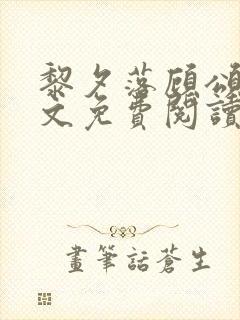 黎夕落顧頌
文免費閱讀
畫筆話蒼生